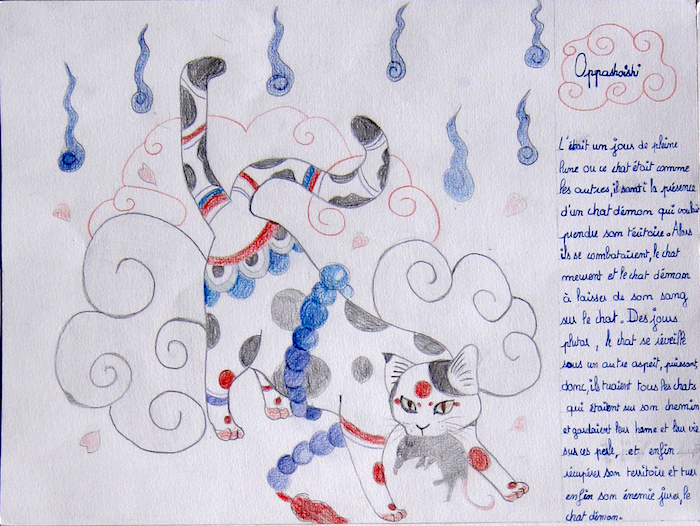 Oppashoishi
L'était un jous de pleine
lune ou ce chat était comme
les autres, il santi la présence
d'un chat démon qui voulait
prendre son téritoire. Alors
ils se combatairent, le chat
meurent et le chat démon
à laisser de son sang
sur le chat. Des jours
plutar, le chat se réveille
sous un autre aspeit, puissant,
donc, ils tuaient tous les chats
qui étaient sur son chemin
et gardaient leur hame et leur vie
sur ces perle, et enfin
récupérer son territoire et tuer
enfin son énemie jurer, le
chat démon.